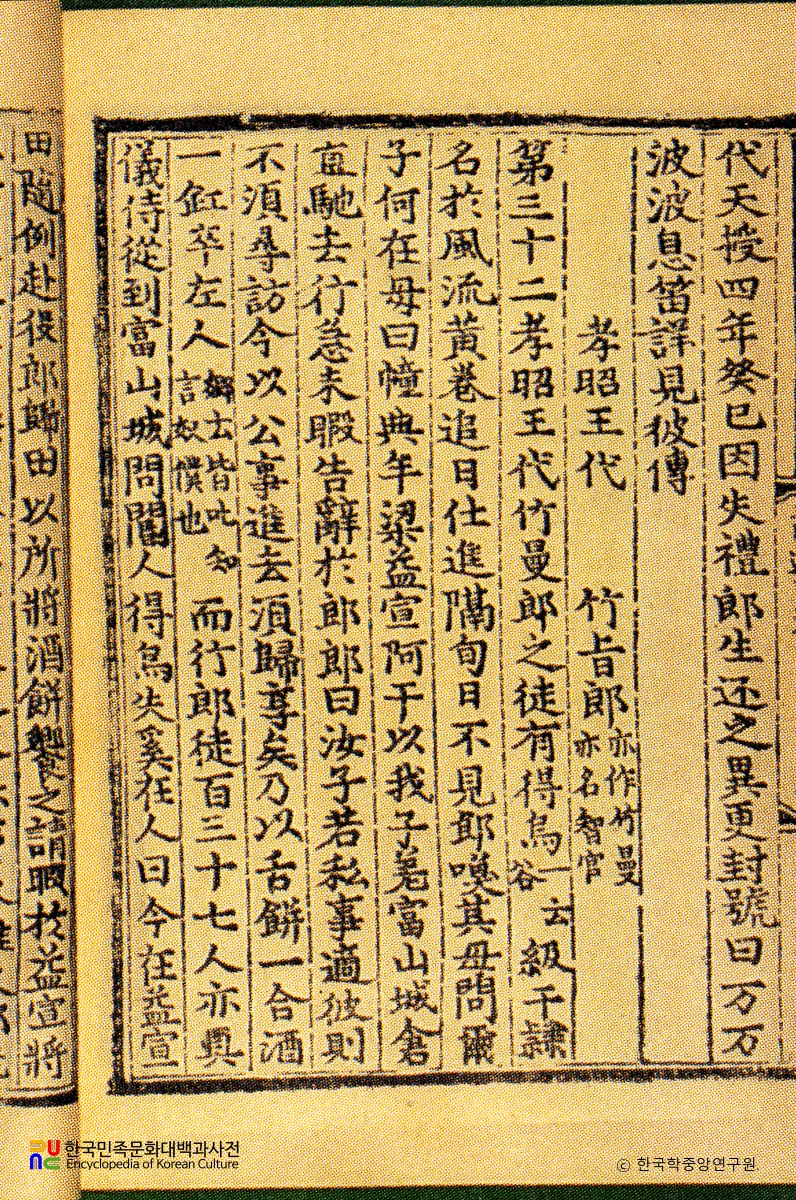 代天授四年癸巳因失禮郎生还之異更封號曰万万
波波息笛詳見彼傳
孝昭王代 竹旨郎亦作竹曼亦名智官
第三十二孝昭王代竹曼郎之徒有得烏一云谷級干隷
名於風流黃卷追日仕進隔旬日不見郎喚其母問爾
子何在母曰幢典牟梁益宣阿干以我子差富山城倉
直馳去行急未暇告辭於郎郎曰汝子若私事適彼則
不須尋訪今以公事進去須歸享矣乃以舌餠一合酒
一缸卒左人鄕云皆叱知言奴僕也而行郎徒百三十七人亦具
儀侍從到富山城問閽人得烏失奚在人曰今在益宣
田隨例赴役郎歸田以所將酒餠饗之請暇於益宣將
한국민족문화대백과사전
Encyclopedia of Korean Culture
© 한국학중앙연구원.